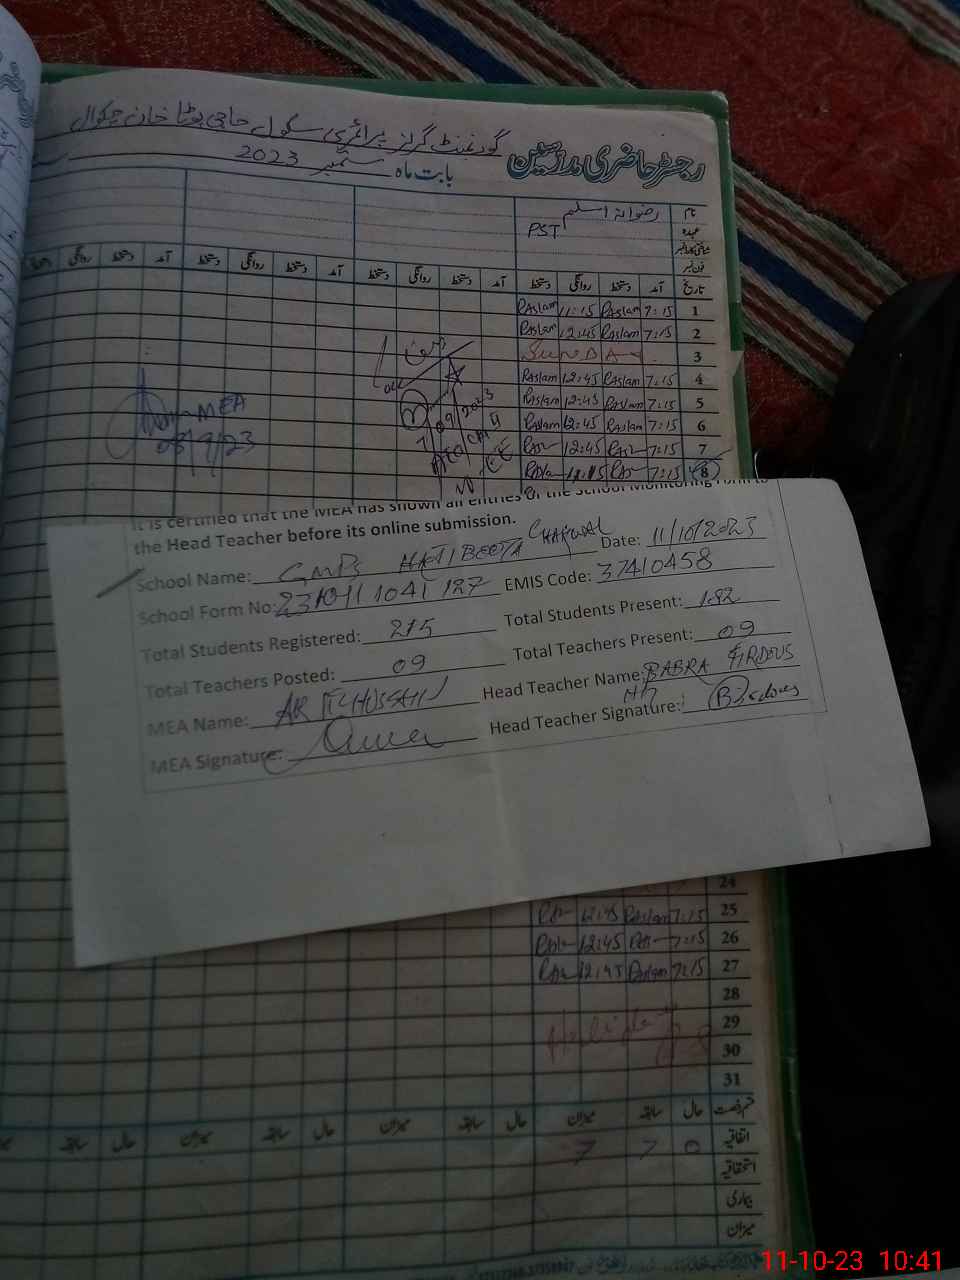 گورنمنٹ گرلز پرائمری سکول حاجی بوٹا خان چکوال
رجسٹر حاضری مدرسین
بابت ماہ ستمبر 2023
نام رضوانہ اسلم
عہدہ PST
فون نمبر
تاریخ آمد دستخط روانگی دستخط آمد دستخط روانگی دستخط آمد دستخط روانگی دستخط
1 7:15 RAslam 11:15 RAslam
2 7:15 RAslam 12:45 RAslam
3 SUNDAY
4 7:15 RAslam 12:45 RAslam
5 7:15 RAslam 12:45 RAslam
6 7:15 RAslam 12:45 RAslam
7 7:15 12:45
8 7:15 11:15
MEA
08/9/23
7/09/2023
It is certified that the MEA has shown all entries of the School Monitoring Form to
the Head Teacher before its online submission.
School Name: GMPS HAJI BOOTA CHAKWAL Date: 11/10/2023
School Form No: EMIS Code: 37410458
Total Students Registered: 215 Total Students Present: 182
Total Teachers Posted: 09 Total Teachers Present: 09
MEA Name: Head Teacher Name: BABRA FIRDOUS
MEA Signature: Head Teacher Signature:
24
25 7:15 RAslam 12:45
26 7:15 12:45
27 7:15 RAslam 12:45
28
29
30
31
قسم رخصت حال سابقہ میزان حال سابقہ میزان حال سابقہ میزان حال سابقہ
اتفاقیہ 0 7 7
استحقاقیہ
بیماری
میزان
11-10-23 10:41